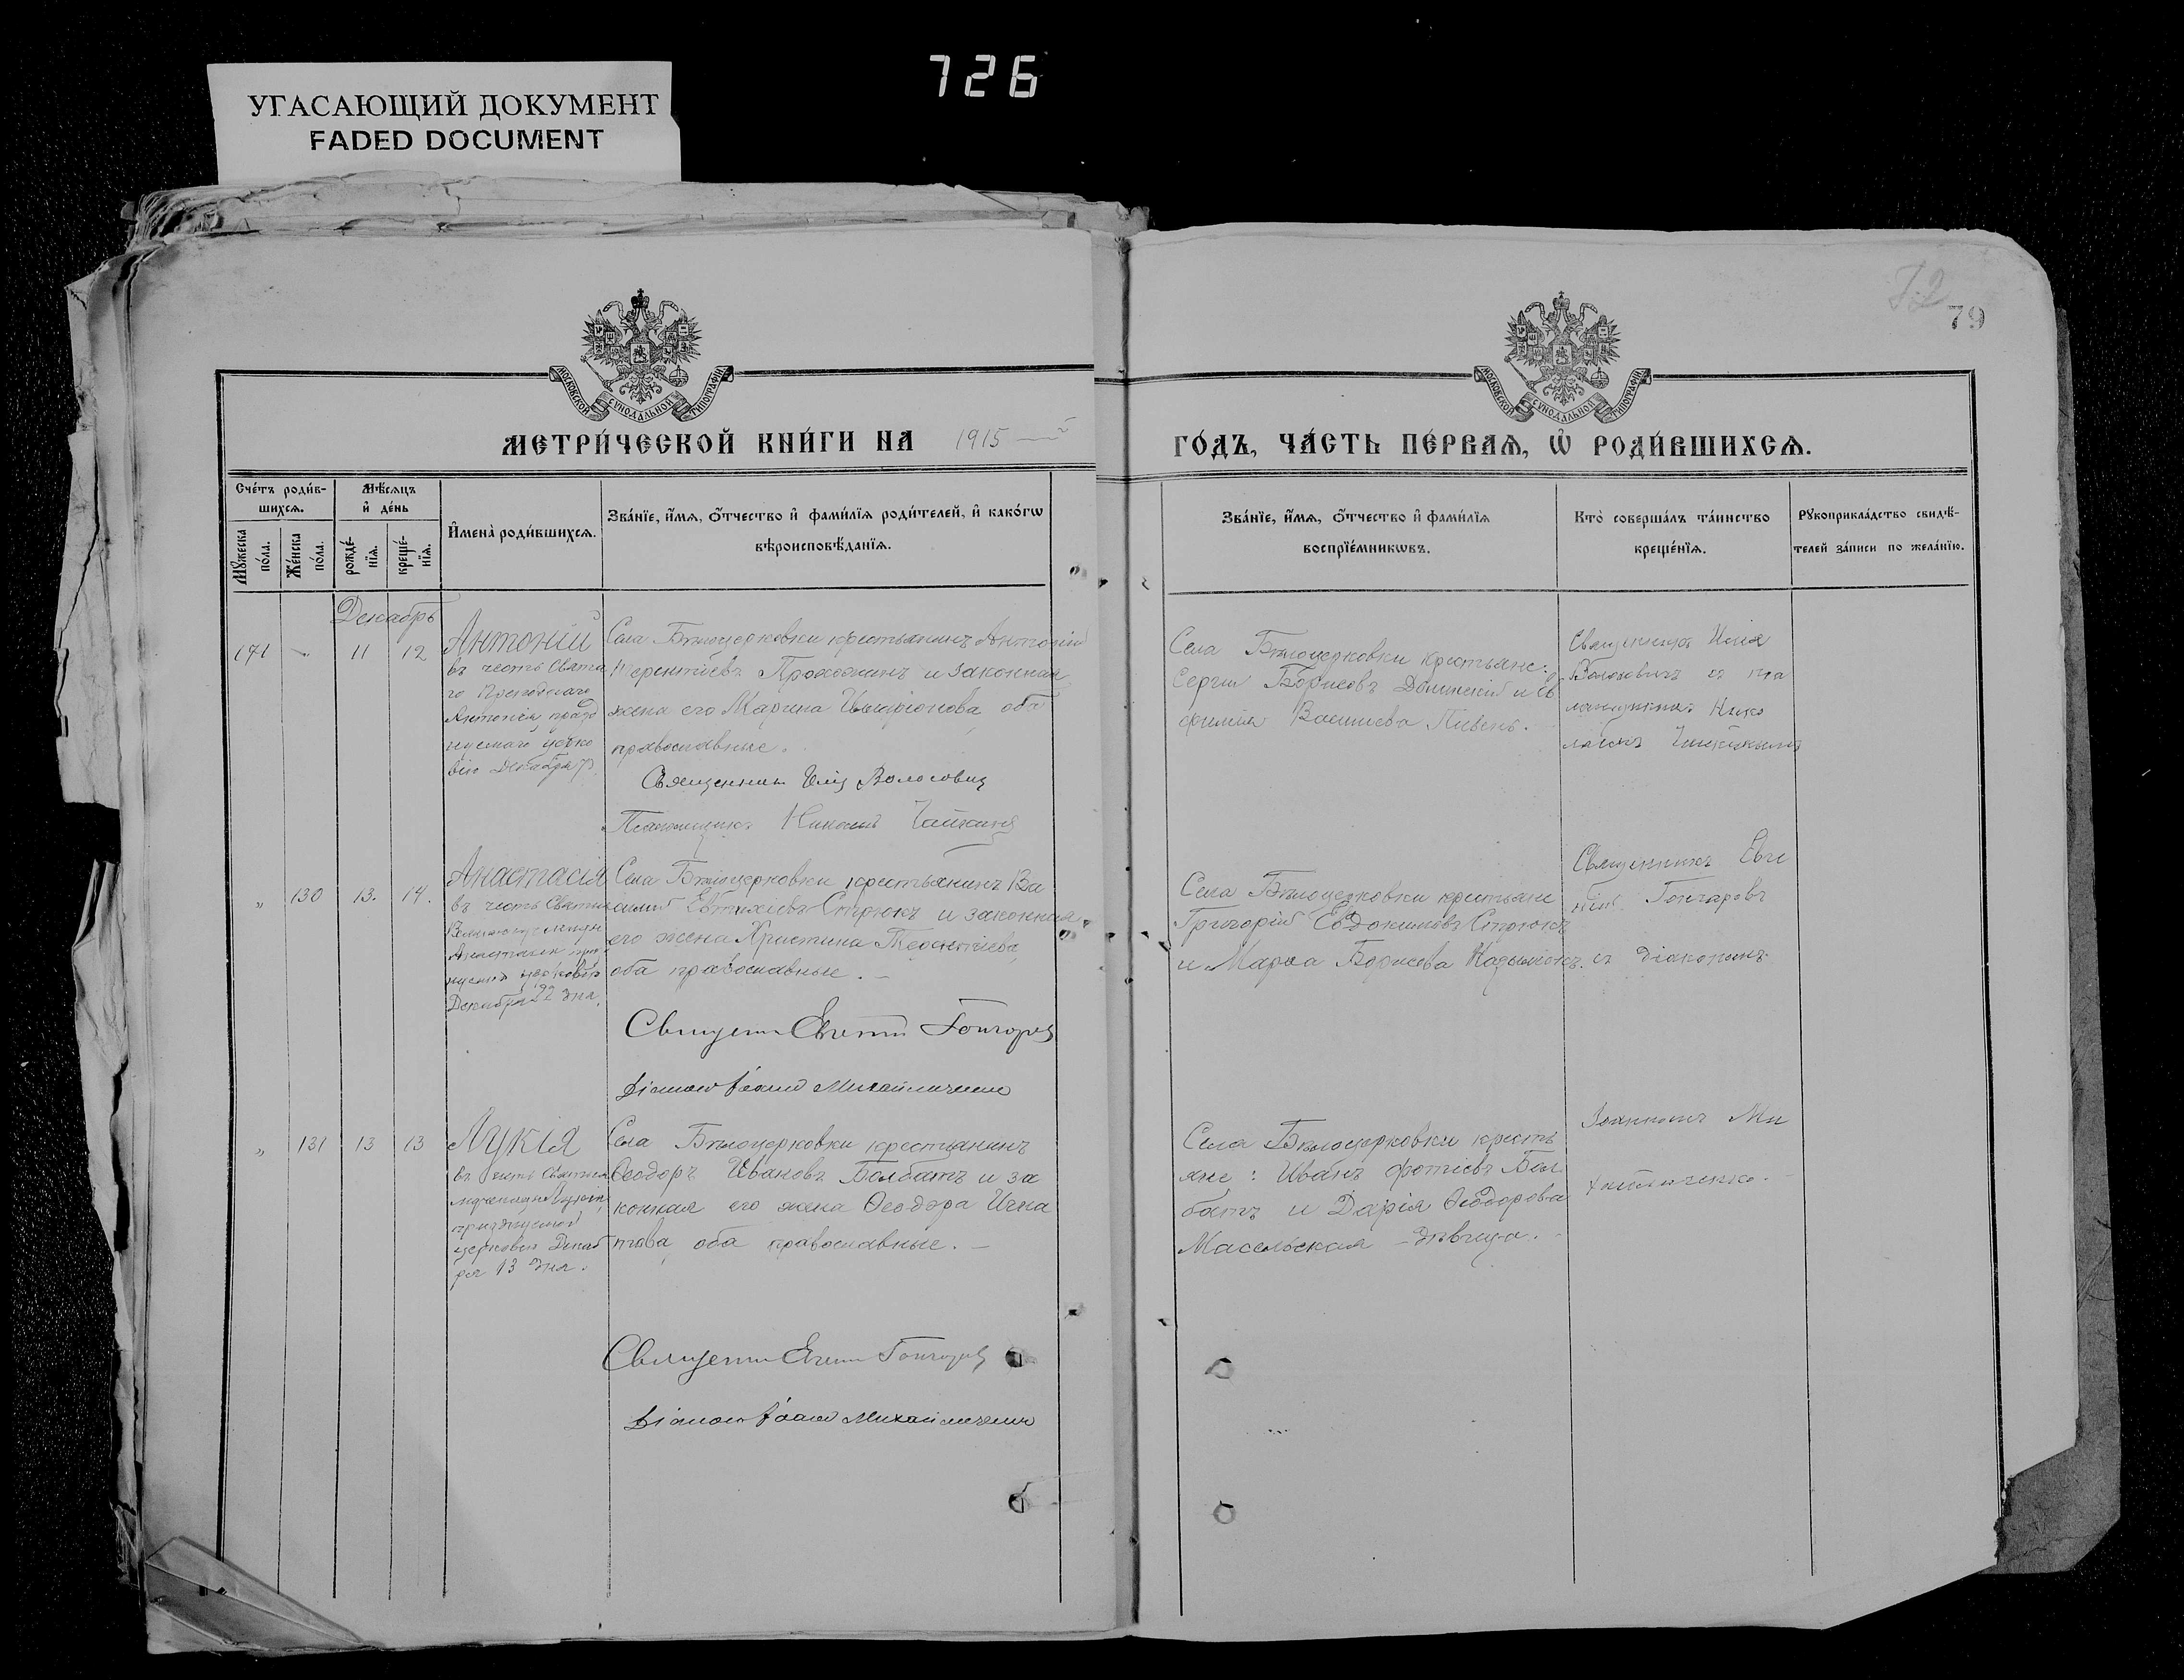 726
УГАСАЮЩИЙ ДОКУМЕНТ
FADED DOCUMENT
79
МОСКОВСКОЙ СѴНОДАЛЬНОЙ ТИПОГРАФІИ
МОСКОВСКОЙ СѴНОДАЛЬНОЙ ТИПОГРАФІИ
МЕТРИ́ЧЕСКОЙ КНИ́ГИ НА 1915
ГО́ДЪ, ЧА́СТЬ ПЕ́РВАѦ, Ѡ҆ РОДИ́ВШИХСѦ.
Сче́тъ роди́в-
шихсѧ.
Мѣ́сѧцъ
и҆ де́нь
Мꙋ́жеска по́ла.
Же́нска по́ла.
рожде́-нїѧ.
креще́-нїѧ.
И҆мена̀ роди́вшихсѧ.
Зва́нїе, и҆́мѧ, ѻ҆́тчество и҆ фами́лїѧ роди́телей, и҆ како́гѡ
вѣроисповѣ́данїѧ.
Зва́нїе, и҆́мѧ, ѻ҆́тчество и҆ фами́лїѧ
воспрїе́мникѡвъ.
Кто̀ соверша́лъ та́инство
креще́нїѧ.
Рꙋкоприкла́дство свидѣ́-
телей за́писи по жела́нїю.
Декабрь
171 11 12
Антоній
въ честь Свята
го Преподобнаго
Антонія празд
нуемаго церко
вію Декабря
Села Бѣлоцерковки крестьянинъ Антоній
Терентіевъ и законная
жена его Марина оба
православные.
Священникъ Илія Волосовичъ
Псаломщикъ Николай
Села Бѣлоцерковки крестьяне:
Сергій Борисовъ Долинскій и Ев
фимія Васильева Пивень.
Священникъ Илія
съ пса
ломщикомъ Нико
лаемъ
„ 130 13. 14.
Анастасія
въ честь Святыя
Великомучениц
Анастасіи празд
нуемыя церковію
Декабря 22 дня.
Села Бѣлоцерковки крестьянинъ Ва
силій Евтихіевъ Стрюкъ и законная
его жена Христина
оба православные. –
Священникъ Евгеній Гончаровъ
Діаконъ Іоаннъ Михайличенко
Села Бѣлоцерковки крестьяне
Григорій Евдокимовъ Стрюкъ
и Марѳа Борисова
Священникъ Евге
ній Гончаровъ
съ діакономъ
Іоанномъ Ми
хайличенко.
„ 131 13 13
Лукія
въ честь Святыя
мученицы Лукіи,
празднуемой
церковію Декаб
ря 13 дня.
Села Бѣлоцерковки крестьянинъ
Ѳеодоръ Ивановъ Болбатъ и за
конная его жена Ѳеодора Игна
това оба православные. –
Священникъ Евгеній Гончаровъ
Діаконъ Іоаннъ Михайличенко
Села Бѣлоцерковки кресть
яне: Иванъ Фотіевъ Бол
батъ и Дарія Ѳеодорова
Масельская – дѣвица.